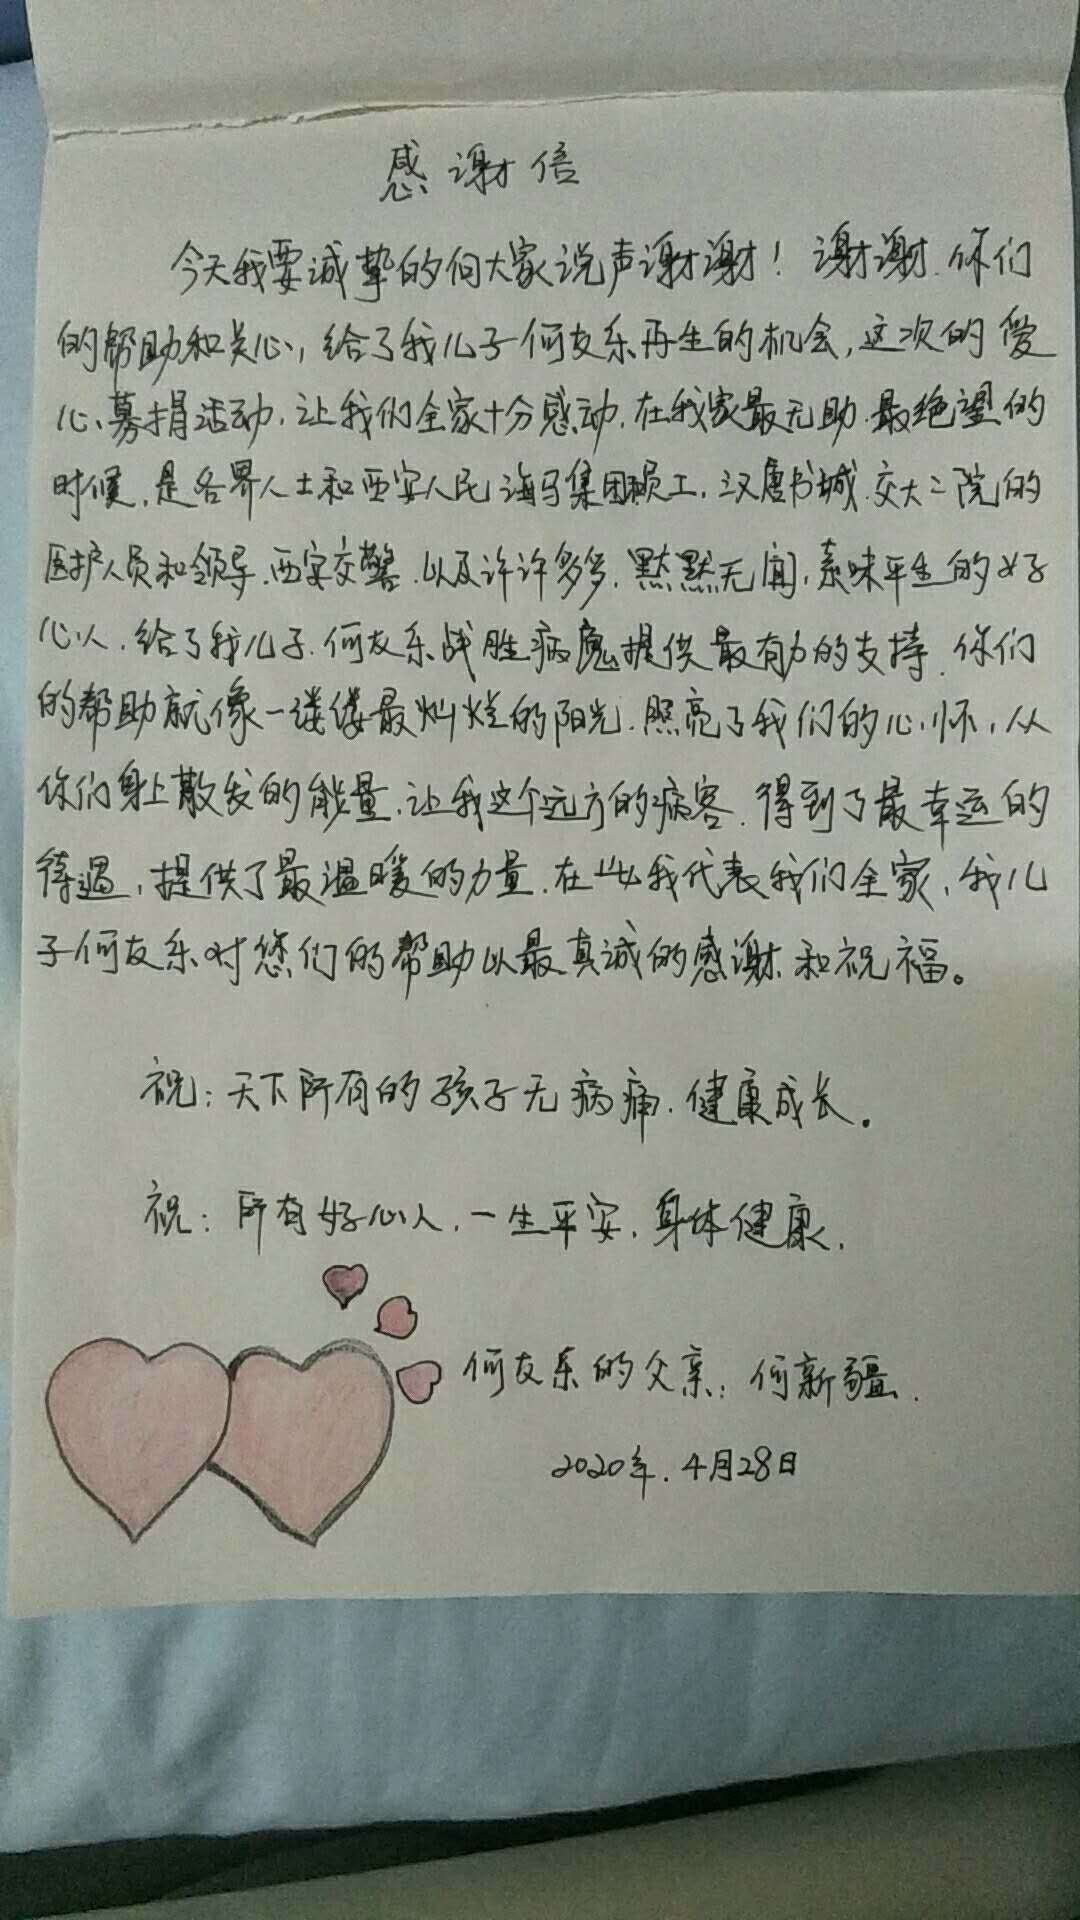 感谢信
今天我要诚挚的向大家说声谢谢！谢谢.你们
的帮助和关心，给了我儿子何友乐再生的机会，这次的爱
心募捐活动.让我们全家十分感动.在我家最无助.最绝望的
时候.是各界人士和西安人民海马集团员工.汉唐书城.交大二院的
医护人员和领导.西安交警.以及许许多多.默默无闻.素昧平生的好
心人.给了我儿子.何友乐战胜病魔提供最有力的支持.你们
的帮助就像一缕缕最灿烂的阳光.照亮了我们的心怀，从
你们身上散发的能量.让我这个远方的病客.得到了最幸运的
待遇，提供了最温暖的力量.在此我代表我们全家，我儿
子何友乐对您们的帮助以最真诚的感谢和祝福。
祝：天下所有的孩子无病痛.健康成长。
祝：所有好心人.一生平安.身体健康.
何友乐的父亲：何新疆.
2020年.4月28日